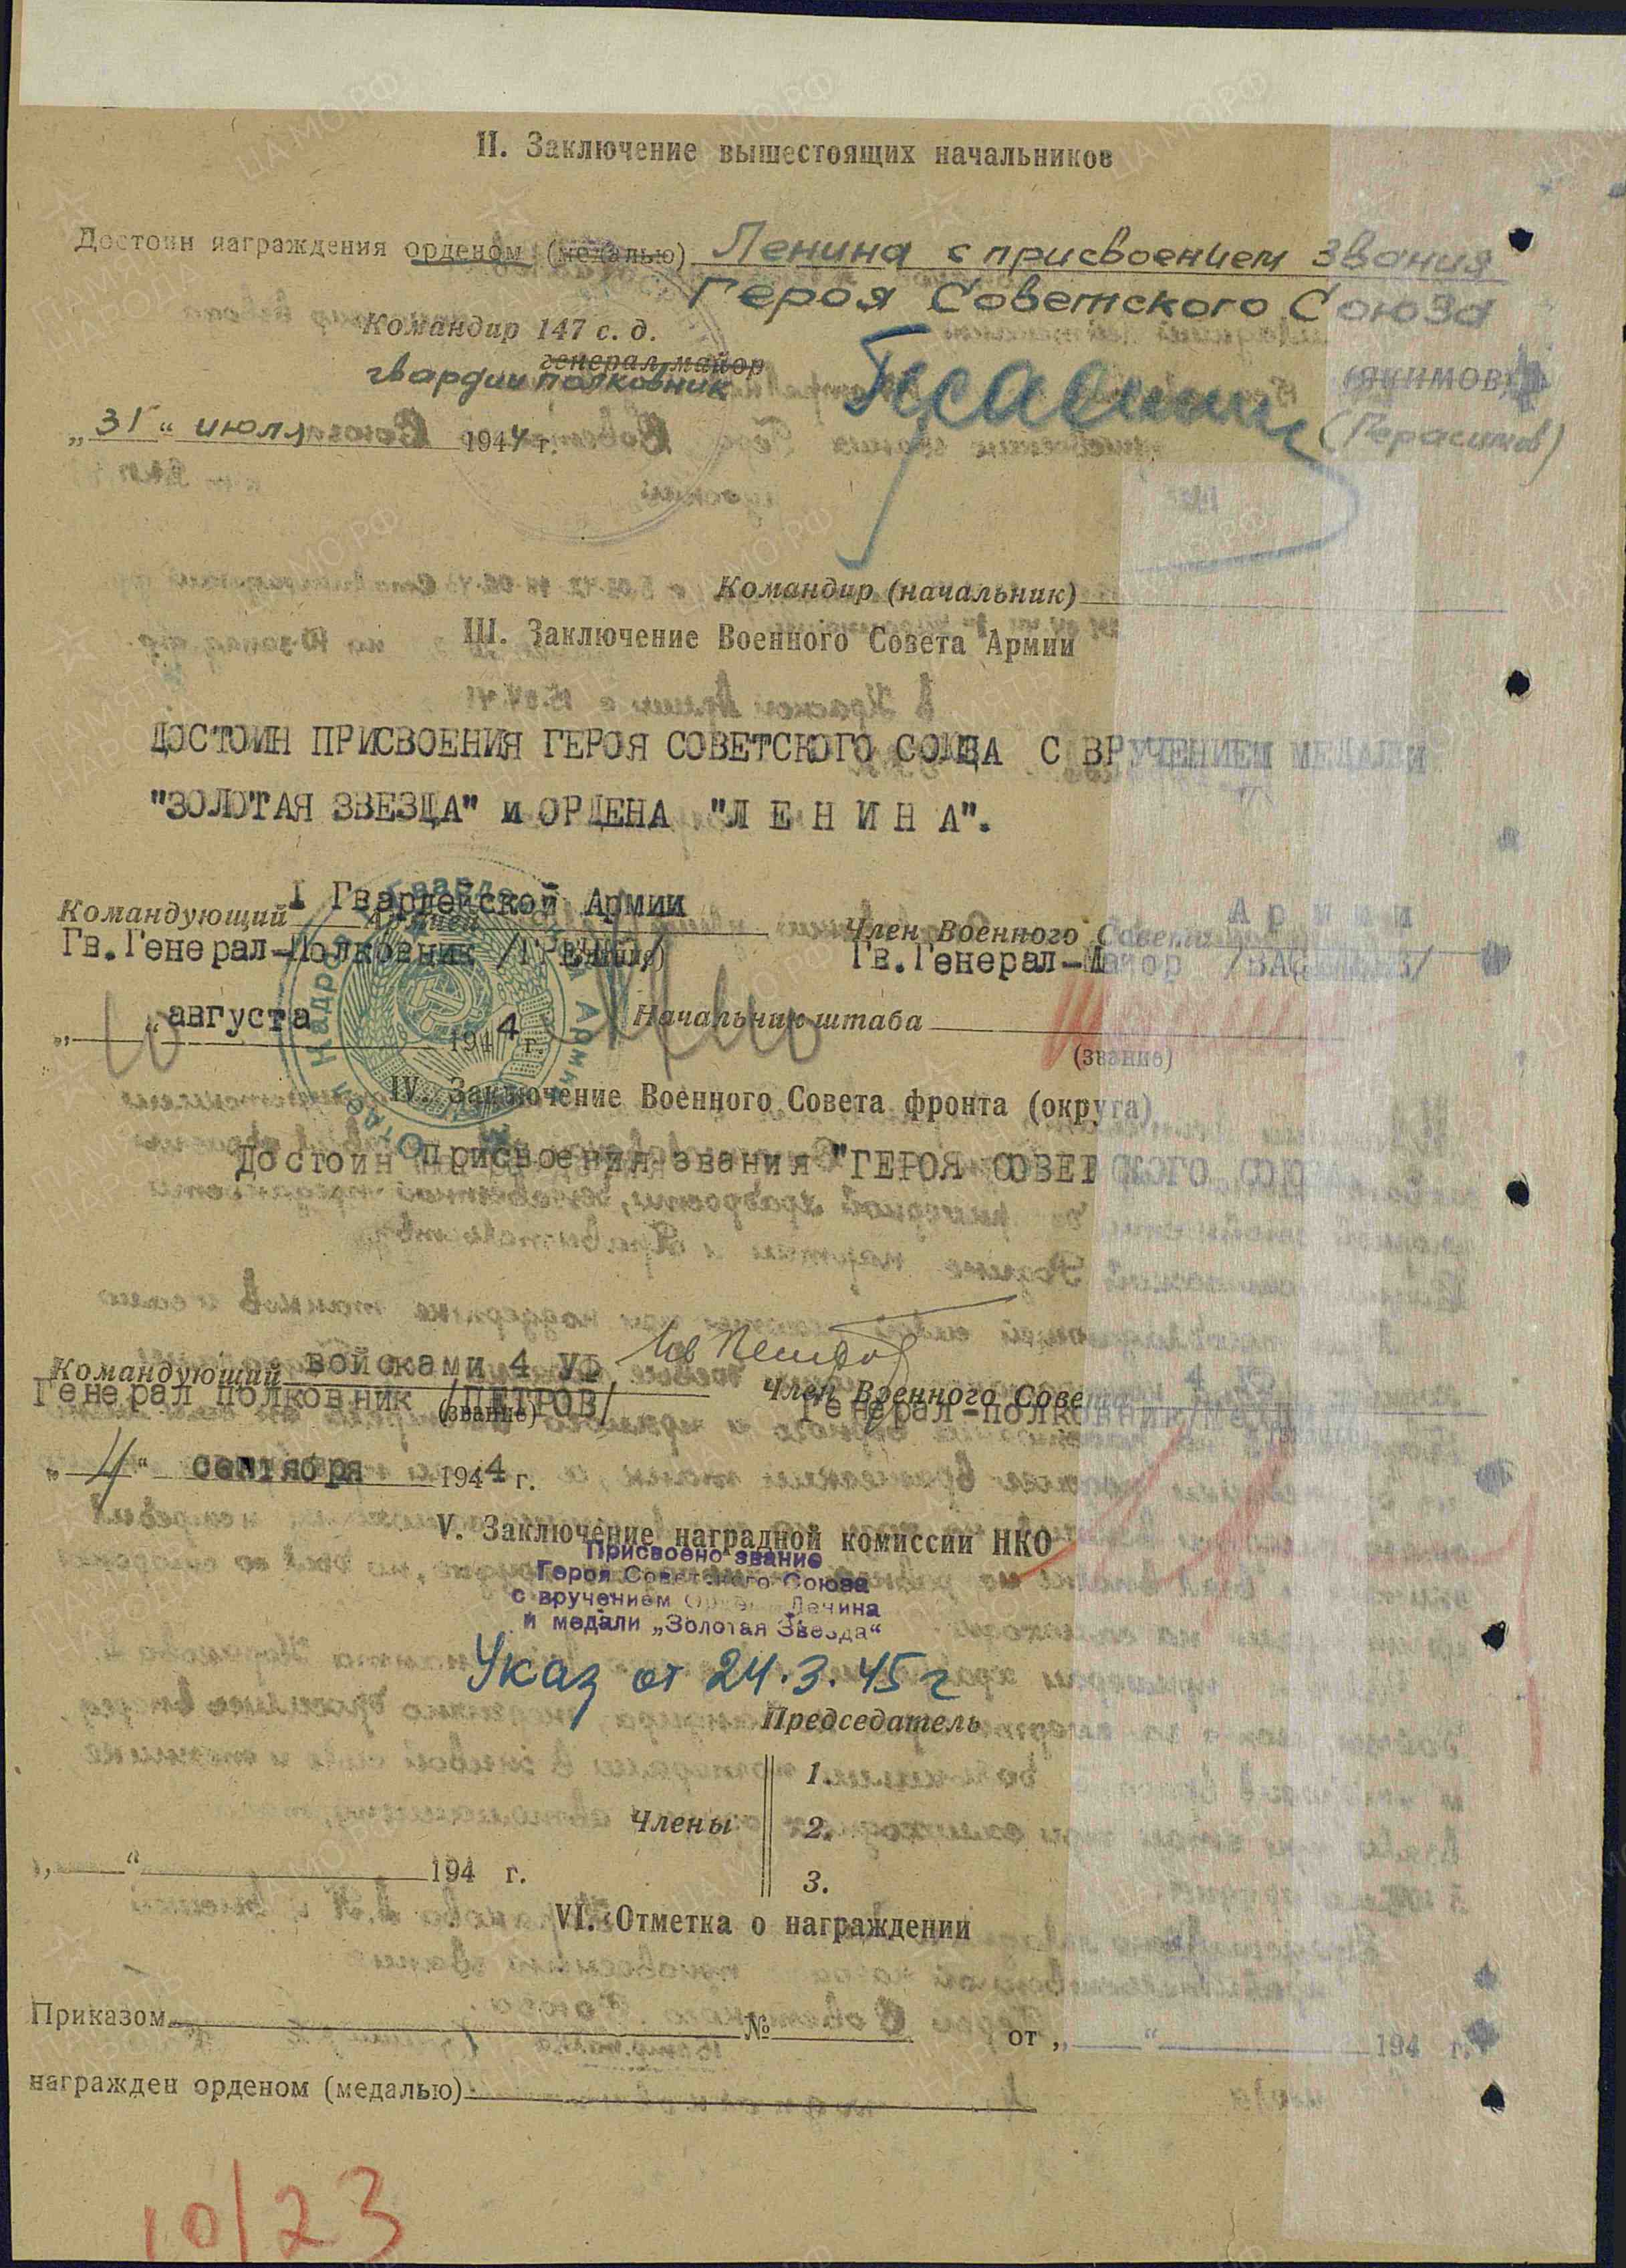 II. Заключение вышестоящих начальников
Достоин награждения орденом (медалью) Ленина с присвоением звания
Героя Советского Союза
Командир 147 с. д.
генерал-майор
гвардии полковник
(ЯКИМОВ)
(Герасимов)
„31“ июля 1944 г.
Командир (начальник)
III. Заключение Военного Совета Армии
ДОСТОИН ПРИСВОЕНИЯ ГЕРОЯ СОВЕТСКОГО СОЮЗА С ВРУЧЕНИЕМ МЕДАЛИ
"ЗОЛОТАЯ ЗВЕЗДА" и ОРДЕНА "Л Е Н И Н А".
I Гвардейской Армии
Командующий Армией
Член Военного Совета Армии
Гв.Генерал-Полковник /ГРЕЧКО/
Гв.Генерал-Майор /ВАСИЛЬЕВ/
„10“ августа 1944 г.
Начальник штаба
(звание)
IV. Заключение Военного Совета фронта (округа)
Достоин присвоения звания "ГЕРОЯ СОВЕТСКОГО СОЮЗА
Командующий войсками 4 УФ
Член Военного Совета 4 УФ
Генерал полковник /ПЕТРОВ/
(звание)
Генерал-полковник
„4“ сентября 1944 г.
V. Заключение наградной комиссии НКО
Присвоено звание
Героя Советского Союза
с вручением Ордена Ленина
и медали „Золотая Звезда“
Указ от 24.3.45 г
Председатель
1.
Члены 2.
„ “ 194 г.
3.
VI. Отметка о награждении
Приказом № от „ “ 194 г.
награжден орденом (медалью)
10/23